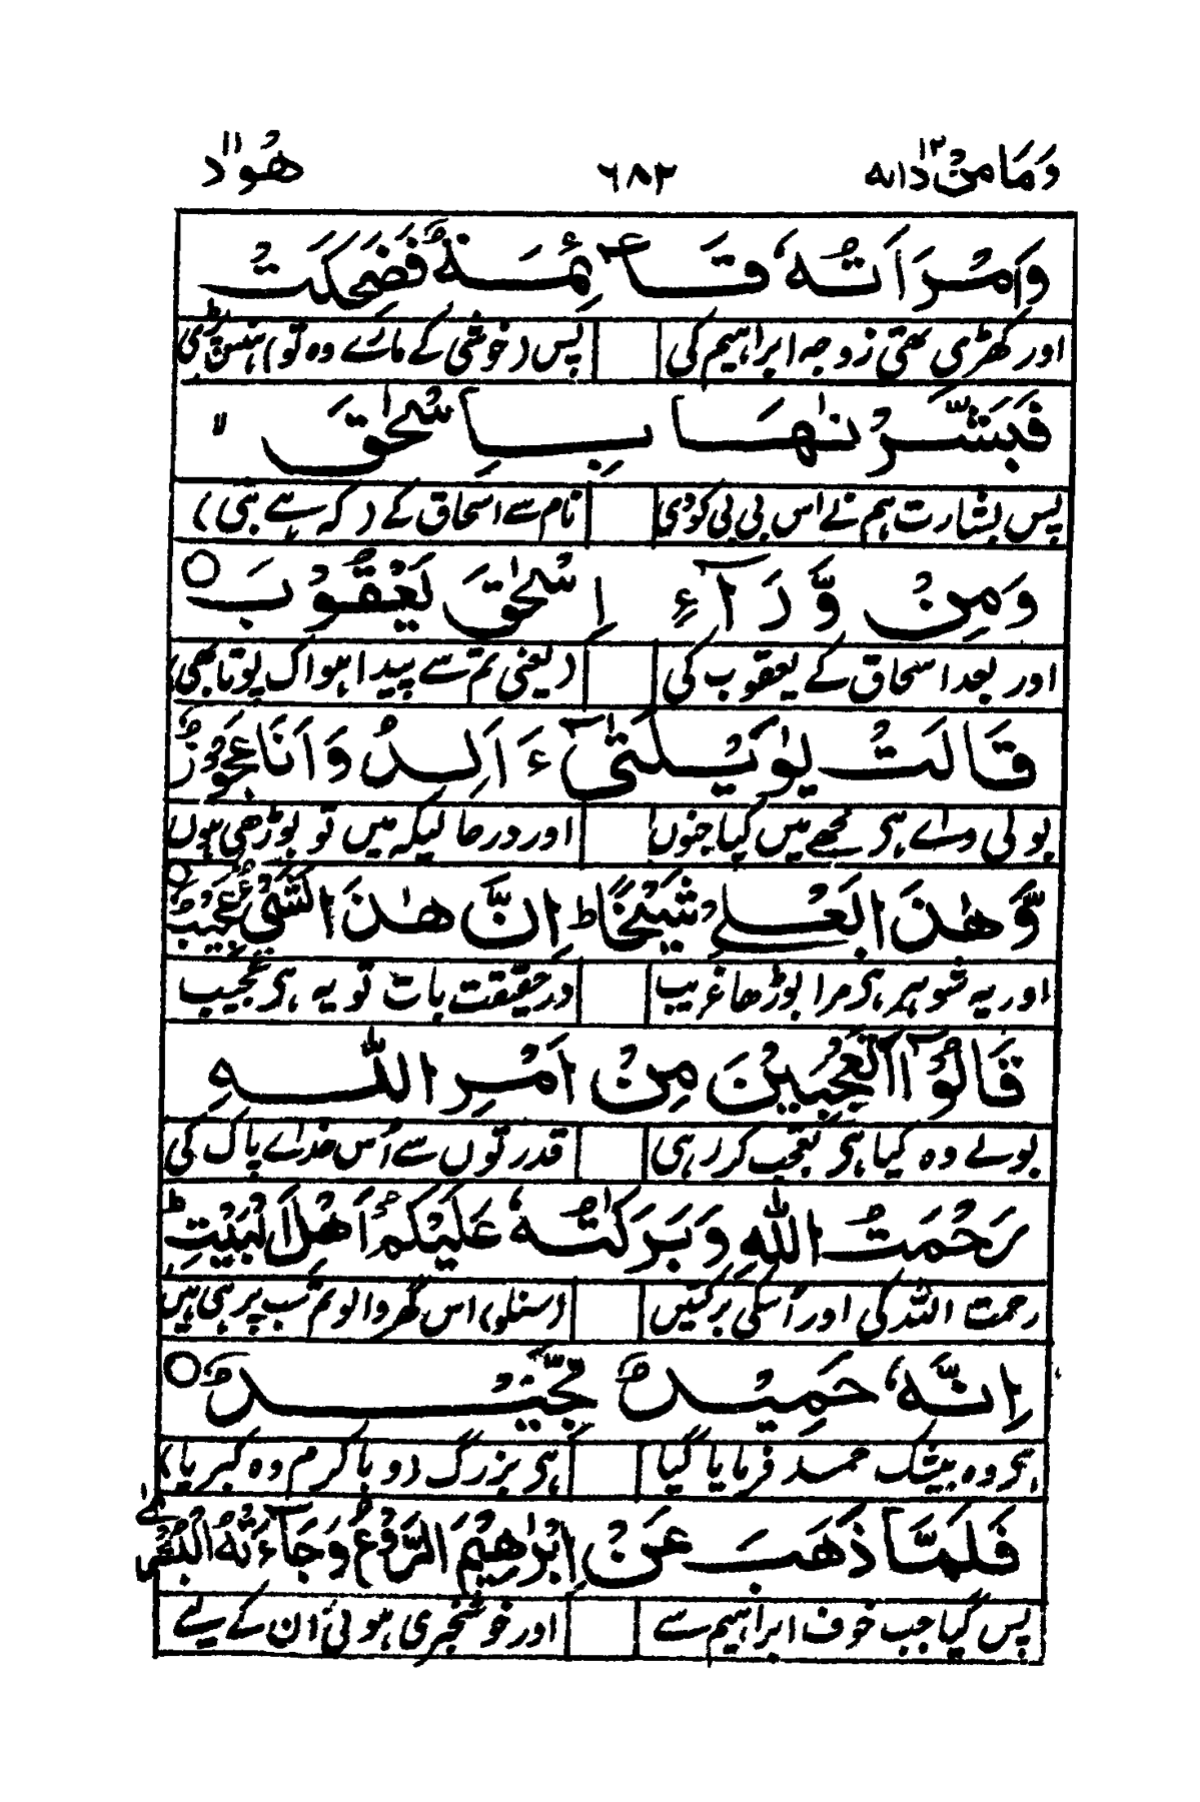 وَمَا مِنْ دَابَّة ١٢ ٦٨٢ هُود ١١
وَامْرَاَتُهٗ قَآئِمَةٌ فَضَحِكَتْ
اور کھڑی تھی زوجہ ابراہیم کی پس (خوشی کے مارے وہ تو) ہنس پڑی
فَبَشَّرْنٰهَا بِاِسْحٰقَ ۙ
پس بشارت ہم نے اس بی بی کو دی نام سے اسحاق کے (کہ ہے نبی)
وَمِنْ وَّرَآءِ اِسْحٰقَ يَعْقُوْبَ ○
اور بعد اسحاق کے یعقوب کی (یعنی تم سے پیدا ہو اک پوتا بھی)
قَالَتْ يٰوَيْلَتٰٓى ءَاَلِدُ وَاَنَا عَجُوْزٌ
بولی واے ہر مجھے میں کیا جنوں اور درحالیکہ میں تو بوڑھی ہوں
وَّهٰذَا بَعْلِيْ شَيْخًا ؕ اِنَّ هٰذَا لَشَيْءٌ عَجِيْبٌ ○
اور یہ شوہر ہر مرا بوڑھا غریب درحقیقت بات تو یہ ہر عجیب
قَالُوْٓا اَتَعْجَبِيْنَ مِنْ اَمْرِ اللّٰهِ
بولے وہ کیا ہر تعجب کر رہی قدرتوں سے اُس خداے پاک کی
رَحْمَتُ اللّٰهِ وَبَرَكٰتُهٗ عَلَيْكُمْ اَهْلَ الْبَيْتِ ؕ
رحمت اللہ کی اور اُسکی برکتیں (سنلو) اس گھر والو تم سب پر ہی ہیں
اِنَّهٗ حَمِيْدٌ مَّجِيْدٌ ○
ہر وہ بیشک حمد فرمایا گیا ہر بزرگ (و باکرم وہ کبریا)
فَلَمَّا ذَهَبَ عَنْ اِبْرٰهِيْمَ الرَّوْعُ وَجَآءَتْهُ الْبُشْرٰى
پس گیا جب خوف ابراہیم سے اور خوشخبری ہوئی ان کے لیے